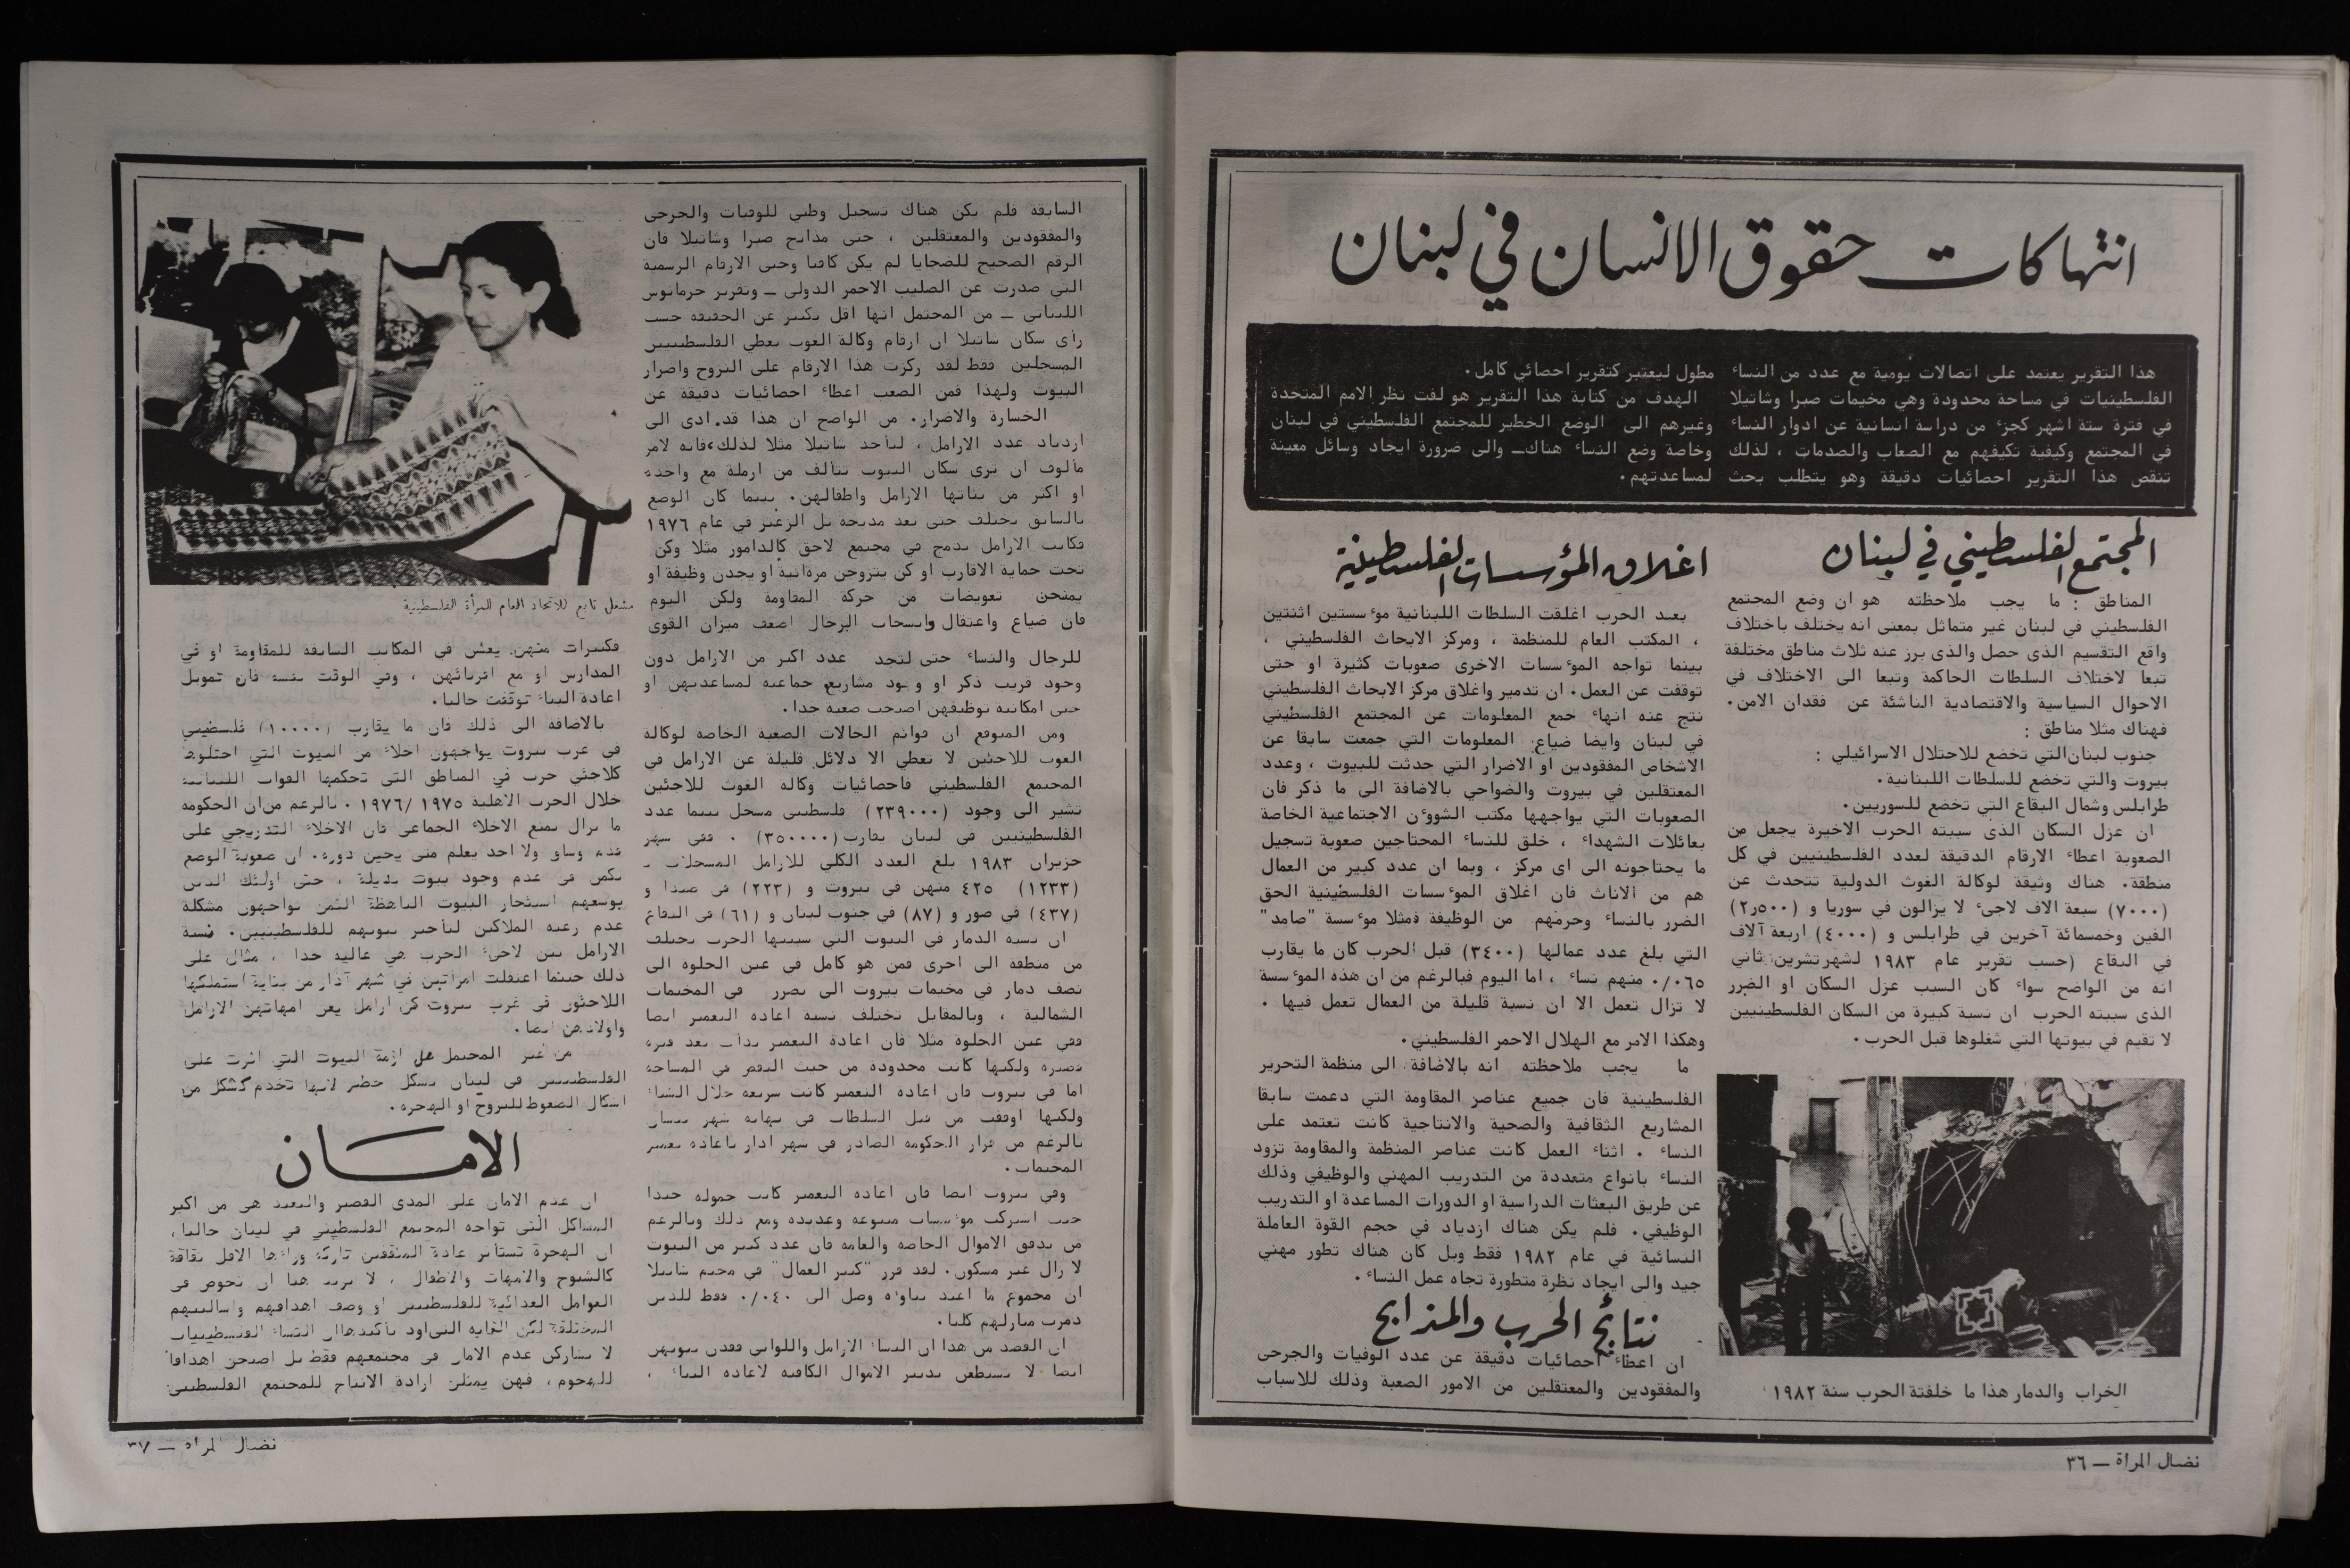 انتهاكات حقوق الانسان في لبنان
هذا التقرير يعتمد على اتصالات يومية مع عدد من النساء
الفلسطينيات في مساحة محدودة وهي مخيمات صبرا وشاتيلا
في فترة ستة اشهر كجزء من دراسة انسانية عن ادوار النساء
في المجتمع وكيفية تكيفهم مع الصعاب والصدمات ، لذلك
تنقص هذا التقرير احصائيات دقيقة وهو يتطلب بحث
مطول ليعتبر كتقرير احصائي كامل.
الهدف من كتابة هذا التقرير هو لفت نظر الامم المتحدة
وغيرهم الى الوضع الخطير للمجتمع الفلسطيني في لبنان
وخاصة وضع النساء هناك_ والى ضرورة ايجاد وسائل معينة
لمساعدتهم.
المجتمع الفلسطيني في لبنان
المناطق : ما يجب ملاحظته هو ان وضع المجتمع
الفلسطيني في لبنان غير متماثل بمعنى انه يختلف باختلاف
واقع التقسيم الذى حصل والذى برز عنه ثلاث مناطق مختلفة
تبعا لاختلاف السلطات الحاكمة وتبعا الى الاختلاف في
الاحوال السياسية والاقتصادية الناشئة عن فقدان الامن.
فهناك مثلا مناطق :
جنوب لبنان التي تخضع للاحتلال الاسرائيلي :
بيروت والتي تخضع للسلطات اللبنانية.
طرابلس وشمال البقاع التي تخضع للسوريين.
ان عزل السكان الذى سببته الحرب الاخيرة يجعل من
الصعوبة اعطاء الارقام الدقيقة لعدد الفلسطينيين في كل
منطقة. هناك وثيقة لوكالة الغوث الدولية تتحدث عن
(٧٠٠٠) سبعة الاف لاجىء لا يزالون في سوريا و (٢٫٥٠٠)
الفين وخمسمائة آخرين في طرابلس و (٤٠٠٠) اربعة آلاف
في البقاع (حسب تقرير عام ١٩٨٣ لشهر تشرين ثاني
انه من الواضح سواء كان السبب عزل السكان او الضرر
الذى سببته الحرب ان نسبة كبيرة من السكان الفلسطينيين
لا تقيم في بيوتها التي شغلوها قبل الحرب.
الخراب والدمار هذا ما خلفتة الحرب سنة ١٩٨٢
اغلاق المؤسسات الفلسطينية
بعد الحرب اغلقت السلطات اللبنانية موءسستين اثنتين
، المكتب العام للمنظمة ، ومركز الابحاث الفلسطيني ،
بينما تواجه الموءسسات الاخرى صعوبات كثيرة او حتى
توقفت عن العمل. ان تدمير واغلاق مركز الابحاث الفلسطيني
نتج عنه انهاء جمع المعلومات عن المجتمع الفلسطيني
في لبنان وايضا ضياع المعلومات التي جمعت سابقا عن
الاشخاص المفقودين او الاضرار التي حدثت للبيوت ، وعدد
المعتقلين في بيروت والضواحي بالاضافة الى ما ذكر فان
الصعوبات التي يواجهها مكتب الشوون الاجتماعية الخاصة
بعائلات الشهداء ، خلق للنساء المحتاجين صعوبة تسجيل
ما يحتاجونه الى اى مركز ، وبما ان عدد كبير من العمال
هم من الاناث فان اغلاق الموءسسات الفلسطينية الحق
الضرر بالنساء وحرمهم من الوظيفة فمثلا موءسسة "صامد"
التي بلغ عدد عمالها (٣٤٠٠) قبل الحرب كان ما يقارب
٠/٠٦٥ منهم نساء ، اما اليوم فبالرغم من ان هذه الموءسسة
لا تزال تعمل الا ان نسبة قليلة من العمال تعمل فيها .
وهكذا الامر مع الهلال الاحمر الفلسطيني.
ما يجب ملاحظته انه بالاضافة الى منظمة التحرير
الفلسطينية فان جميع عناصر المقاومة التي دعمت سابقا
المشاريع الثقافية والصحية والانتاجية كانت تعتمد على
النساء . اثناء العمل كانت عناصر المنظمة والمقاومة تزود
النساء بانواع متعددة من التدريب المهني والوظيفي وذلك
عن طريق البعثات الدراسية او الدورات المساعدة او التدريب
الوظيفي. فلم يكن هناك ازدياد في حجم القوة العاملة
النسائية في عام ١٩٨٢ فقط وبل كان هناك تطور مهني
جيد والى ايجاد نظرة متطورة تجاه عمل النساء.
نتائج الحرب والمذابح
ان اعطاء احصائيات دقيقة عن عدد الوفيات والجرحى
والمفقودين والمعتقلين من الامور الصعبة وذلك للاسباب
نضال المراة _ ٣٦
السابقة فلم يكن هناك تسجيل وطني للوفيات والجرحى
والمفقودين والمعتقلين ، حتى مذابح صبرا وشاتيلا فان
الرقم الصحيح للضحايا لم يكن كافيا وحتى الارقام الرسمية
التي صدرت عن الصليب الاحمر الدولي _ وتقرير جرمانوس
اللبناني _ من المحتمل انها اقل بكثير عن الحقيقة حسب
رأى سكان شاتيلا ان ارقام وكالة الغوث تعطي الفلسطينيين
المسجلين فقط لقد ركزت هذا الارقام على النزوح واضرار
البيوت ولهذا فمن الصعب اعطاء احصائيات دقيقة عن
الخسارة والاضرار. من الواضح ان هذا قد ادى الى
ازدياد عدد الارامل ، لنأخذ شاتيلا مثلا لذلك، فانه لامر
مألوف ان نرى سكان البيوت تتألف من ارملة مع واحدة
او اكثر من بناتها الارامل واطفالهن. بينما كان الوضع
بالسابق يختلف حتى بعد مذبحة تل الزعتر في عام ١٩٧٦
فكانت الارامل تدمج في مجتمع لاحق كالدامور مثلا وكن
تحت حماية الاقارب او كن يتزوجن مرة ثانية او يجدن وظيفة او
يمنحن تعويضات من حركة المقاومة ولكن اليوم
فان ضياع واعتقال وانسحاب الرجال اضعف ميزان القوى
للرجال والنساء حتى لتجد عدد اكبر من الارامل دون
وجود قريب ذكر او وجود مشاريع جماعية لمساعدتهن او
حتى امكانية توظيفهن اصبحت صعبة جدا.
ومن المتوقع ان قوائم الحالات الصعبة الخاصة لوكالة
الغوث للاجئين لا تعطي الا دلائل قليلة عن الارامل في
المجتمع الفلسطيني فاحصائيات وكالة الغوث للاجئين
تشير الى وجود (٢٣٩٠٠٠) فلسطيني مسجل بينما عدد
الفلسطينيين في لبنان يقارب (٣٥٠٠٠٠) . ففي شهر
حزيران ١٩٨٣ بلغ العدد الكلي للارامل المسجلات
(١٢٣٣) ٤٢٥ منهن في بيروت و (٢٢٣) في صيدا و
(٤٣٧) في صور و (٨٧) في جنوب لبنان و (٦١) في البقاع
ان نسبة الدمار في البيوت التي سببتها الحرب يختلف
من منطقة الى اخرى فمن هو كامل في عين الحلوة الى
نصف دمار في مخيمات بيروت الى تضرر في المخيمات
الشمالية ، وبالمقابل تختلف نسبة اعادة التعمير ايضا
ففي عين الحلوة مثلا فان اعادة التعمير بدأت بعد فترة
قصيرة ولكنها كانت محدودة من حيث النقص في المساحة
اما في بيروت فان اعادة التعمير كانت سريعة خلال الشتاء
ولكنها اوقفت من قبل السلطات في نهاية شهر نيسان
بالرغم من قرار الحكومة الصادر في شهر اذار باعادة تعمير
المخيمات.
وفي بيروت ايضا فان اعادة التعمير كانت حمولة جيدا
حيث اشتركت موءسسات متنوعة وعديدة ومع ذلك وبالرغم
من تدفق الاموال الخاصة والعامة فان عدد كبير من البيوت
لا زال غير مسكون. لقد قرر "كبير العمال" في مخيم شاتيلا
ان مجموع ما اعيد بناوءه وصل الى ٠/٠٤٠ فقط للذين
دمرت منازلهم كليا.
ان القصد من هذا ان النساء الارامل واللواتي فقدن بيوتهن
ايضا لا يستطعن تدبير الاموال الكافية لاعادة البناء .
مشغل تابع للاتحاد العام للمرأة الفلسطينية
فكثيرات منهن يعشن في المكاتب السابقة للمقاومة او في
المدارس او مع اقربائهن ، وفي الوقت نفسه فان تمويل
اعادة البناء توقفت حاليا.
بالاضافة الى ذلك فان ما يقارب (١٠٠٠٠) فلسطيني
في غرب بيروت يواجهون اخلاء من البيوت التي احتلوها
كلاجئي حرب في المناطق التي تحكمها القوات اللبنانية
خلال الحرب الاهلية ١٩٧٥ / ١٩٧٦ . بالرغم من ان الحكومة
ما تزال تمنع الاخلاء الجماعي فان الاخلاء التدريجي على
قدم وساق ولا احد يعلم متى يحين دوره. ان صعوبة الوضع
تكمن في عدم وجود بيوت بديلة ، حتى اولئك الذين
بوسعهم استئجار البيوت الباهظة الثمن يواجهون مشكلة
عدم رغبة الملاكين لتأجير بيوتهم للفلسطينيين. فنسبة
الارامل بين لاجىء الحرب هي عالية جدا ، مثال على
ذلك حينما اعتقلت امرأتين في شهر آذار من بناية استملكها
اللاجئون في غرب بيروت كن ارامل يعن امهاتهن الارامل
واولادهن ايضا.
من غير المحتمل هل ازمة البيوت التي اثرت على
الفلسطينيين في لبنان بشكل خطير لانها تخدم كشكل من
اشكال الضغوط للنزوح او الهجرة.
الامـان
ان عدم الامان على المدى القصير والبعيد هي من اكبر
المشاكل التي تواجه المجتمع الفلسطيني في لبنان حاليا،
ان الهجرة تستأثر عادة المثقفين تاركة وراءها الاقل ثقافة
كالشيوخ والامهات والاطفال ، لا نريد هنا ان نخوض في
العوامل العدائية للفلسطينيين او وصف اهدافهم واساليبهم
المختلفة لكن الغاية التي اود تأكيدها ان النساء الفلسطينيات
لا يشاركن عدم الامان في مجتمعهم فقط بل اصبحن اهدافا
للهجوم، فهن يمثلن ارادة الانتاج للمجتمع الفلسطيني
نضال المراة _ ٣٧